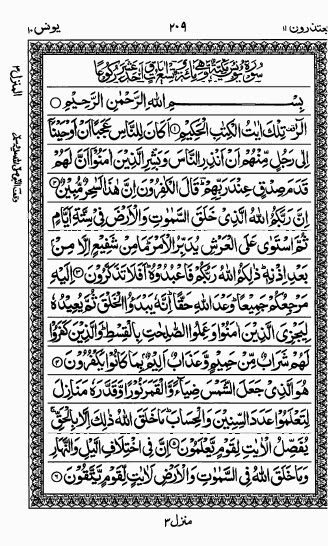 يعتذرون ١١
٢٠٩
يونس ١٠
بِسْمِ اللهِ الرَّحْمٰنِ الرَّحِيْمِ
الٓرٰ تِلْكَ اٰيٰتُ الْكِتٰبِ الْحَكِيْمِ ۝١ اَكَانَ لِلنَّاسِ عَجَبًا اَنْ اَوْحَيْنَآ
اِلٰى رَجُلٍ مِّنْهُمْ اَنْ اَنْذِرِ النَّاسَ وَبَشِّرِ الَّذِيْنَ اٰمَنُوْٓا اَنَّ لَهُمْ
قَدَمَ صِدْقٍ عِنْدَ رَبِّهِمْ ؔ قَالَ الْكٰفِرُوْنَ اِنَّ هٰذَا لَسٰحِرٌ مُّبِيْنٌ ۝٢
اِنَّ رَبَّكُمُ اللهُ الَّذِيْ خَلَقَ السَّمٰوٰتِ وَالْاَرْضَ فِيْ سِتَّةِ اَيَّامٍ
ثُمَّ اسْتَوٰى عَلَى الْعَرْشِ يُدَبِّرُ الْاَمْرَ ؕ مَا مِنْ شَفِيْعٍ اِلَّا مِنْۢ
بَعْدِ اِذْنِهٖ ؕ ذٰلِكُمُ اللهُ رَبُّكُمْ فَاعْبُدُوْهُ ؕ اَفَلَا تَذَكَّرُوْنَ ۝٣ اِلَيْهِ
مَرْجِعُكُمْ جَمِيْعًا ؕ وَعْدَ اللهِ حَقًّا ؕ اِنَّهٗ يَبْدَؤُا الْخَلْقَ ثُمَّ يُعِيْدُهٗ
لِيَجْزِيَ الَّذِيْنَ اٰمَنُوْا وَعَمِلُوا الصّٰلِحٰتِ بِالْقِسْطِ ؕ وَالَّذِيْنَ كَفَرُوْا
لَهُمْ شَرَابٌ مِّنْ حَمِيْمٍ وَّعَذَابٌ اَلِيْمٌۢ بِمَا كَانُوْا يَكْفُرُوْنَ ۝٤
هُوَ الَّذِيْ جَعَلَ الشَّمْسَ ضِيَآءً وَّالْقَمَرَ نُوْرًا وَّقَدَّرَهٗ مَنَازِلَ
لِتَعْلَمُوْا عَدَدَ السِّنِيْنَ وَالْحِسَابَ ؕ مَا خَلَقَ اللهُ ذٰلِكَ اِلَّا بِالْحَقِّ ۚ
يُفَصِّلُ الْاٰيٰتِ لِقَوْمٍ يَّعْلَمُوْنَ ۝٥ اِنَّ فِي اخْتِلَافِ الَّيْلِ وَالنَّهَارِ
وَمَا خَلَقَ اللهُ فِي السَّمٰوٰتِ وَالْاَرْضِ لَاٰيٰتٍ لِّقَوْمٍ يَّتَّقُوْنَ ۝٦
المنزل ٣
منزل ٣